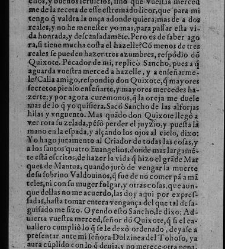 ced, y buenos seruicios, sino que vuessa merced
me dé la receta desse estremado licor, que para mi
tengo q̃ valdra la onça adonde quiera, mas de a dos
reales, y no he menester yo mas, para passar esta vi-
da honrada, y descansadamẽte. Pero es de saber ago
ra, si tiene mucha costa el hazelle? Cõ menos de tres
reales se pueden hazer tres azumbres, respõdio dõ
Quixote. Pecador de mi, replicò Sancho, pues a q̃
aguarda vuestra merced a hazelle, y a enseñarme-
le? Calla amigo, respõdio don Quixote, q̃ mayores
secretos pienso enseñarte, y mayores mercedes ha-
zerte: y por agora curemonos, q̃ la oreja me duele
mas de lo q̃ yo quisiera. Sacò Sancho de las alforjas
hilas, y vnguento. Mas quãdo don Quixote llegò a
ver rota su zelada, pẽsò perder el juyzio, y puesta la
mano en la espada, y alçando los ojos al cielo, dixo:
Yo hago juramento al Criador de todas las cosas,
y a los santos quatro Euangelios, donde mas larga-
mente estã escritos, de hazer la vida q̃ hizo el grãde Mar
ques de Mantua, quando jurò de vengar la muerte
de su sobrino Valdouinos, q̃ fue de no comer pã a mã
teles, ni con su muger folgar, y otras cosas, que aun-
que dellas no me acuerdo, las doy aqui por expres-
sadas, hasta tomar entera vengança del que tal de-
saguisado me fizo. Oyendo esto Sancho, le dixo: Ad-
uierta vuestra merced, señor dõ Quixote, q̃ si el ca-
uallero cumplio lo q̃ se le dexò ordenado, de yrse a
presentar ante mi señora Dulzinea del Toboso, ya
aura cũplido con lo q̃ deuia, y no merece otra pena,